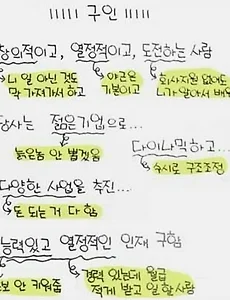 ||||| 구인 |||||
창의적이고, 열정적이고, 도전하는 사람
니 일 아닌 것도 야근은 회사지원 없어도
막 가져가서 하고 기본이고 니가 알아서 배우
당사는 젊은기업으로...
늙은놈 안 뽑겠음 다이나믹하고...
수시로 구조조정
다양한 사업을 추진...
돈 되는 거 다 함
능력있고 열정적인 인재 구함
초보 안 키워줌 경력 있는데 월급
적게 받고 일 할 사람